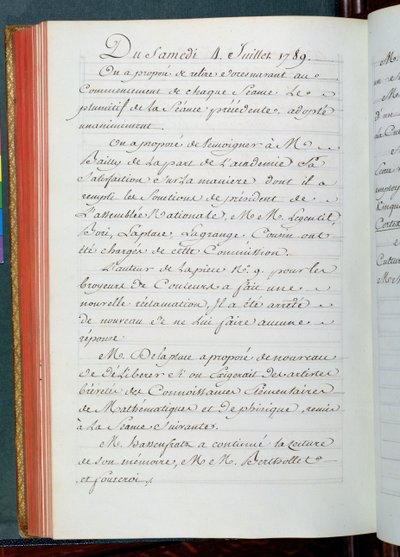 Du Samedi 4. Juillet 1789.
On a proposé de relire doresnavant au
Commencement de chaque Séance Le
plumitif de la Séance précédente, adopté
unanimement.
On a proposé de témoigner à M.
Bailly de la part de L'academie Sa
Satisfaction Sur la maniere dont il a
rempli les fonctions de président de
L'assemblée Nationale, M M. Legentil,
Bori, Laplace, Lagrange, Cousin ont
été chargés de cette Commission.
L'auteur de la piece N.º 9. pour les
broyeurs de Couleurs a fait une
nouvelle réclamation, Il a été arrêté
de nouveau de ne lui faire aucune
réponse
M. Delaplace a proposé de nouveau
de déliberer Si on Exigerait des artistes
brévetés des Connoissances Elémentaires
de Mathématiques et de phisique, remis
à La Séance Suivante.
M. Hassenfratz a continué la lecture
de son mémoire, M M. Berthollet
et fourcroi.
M.